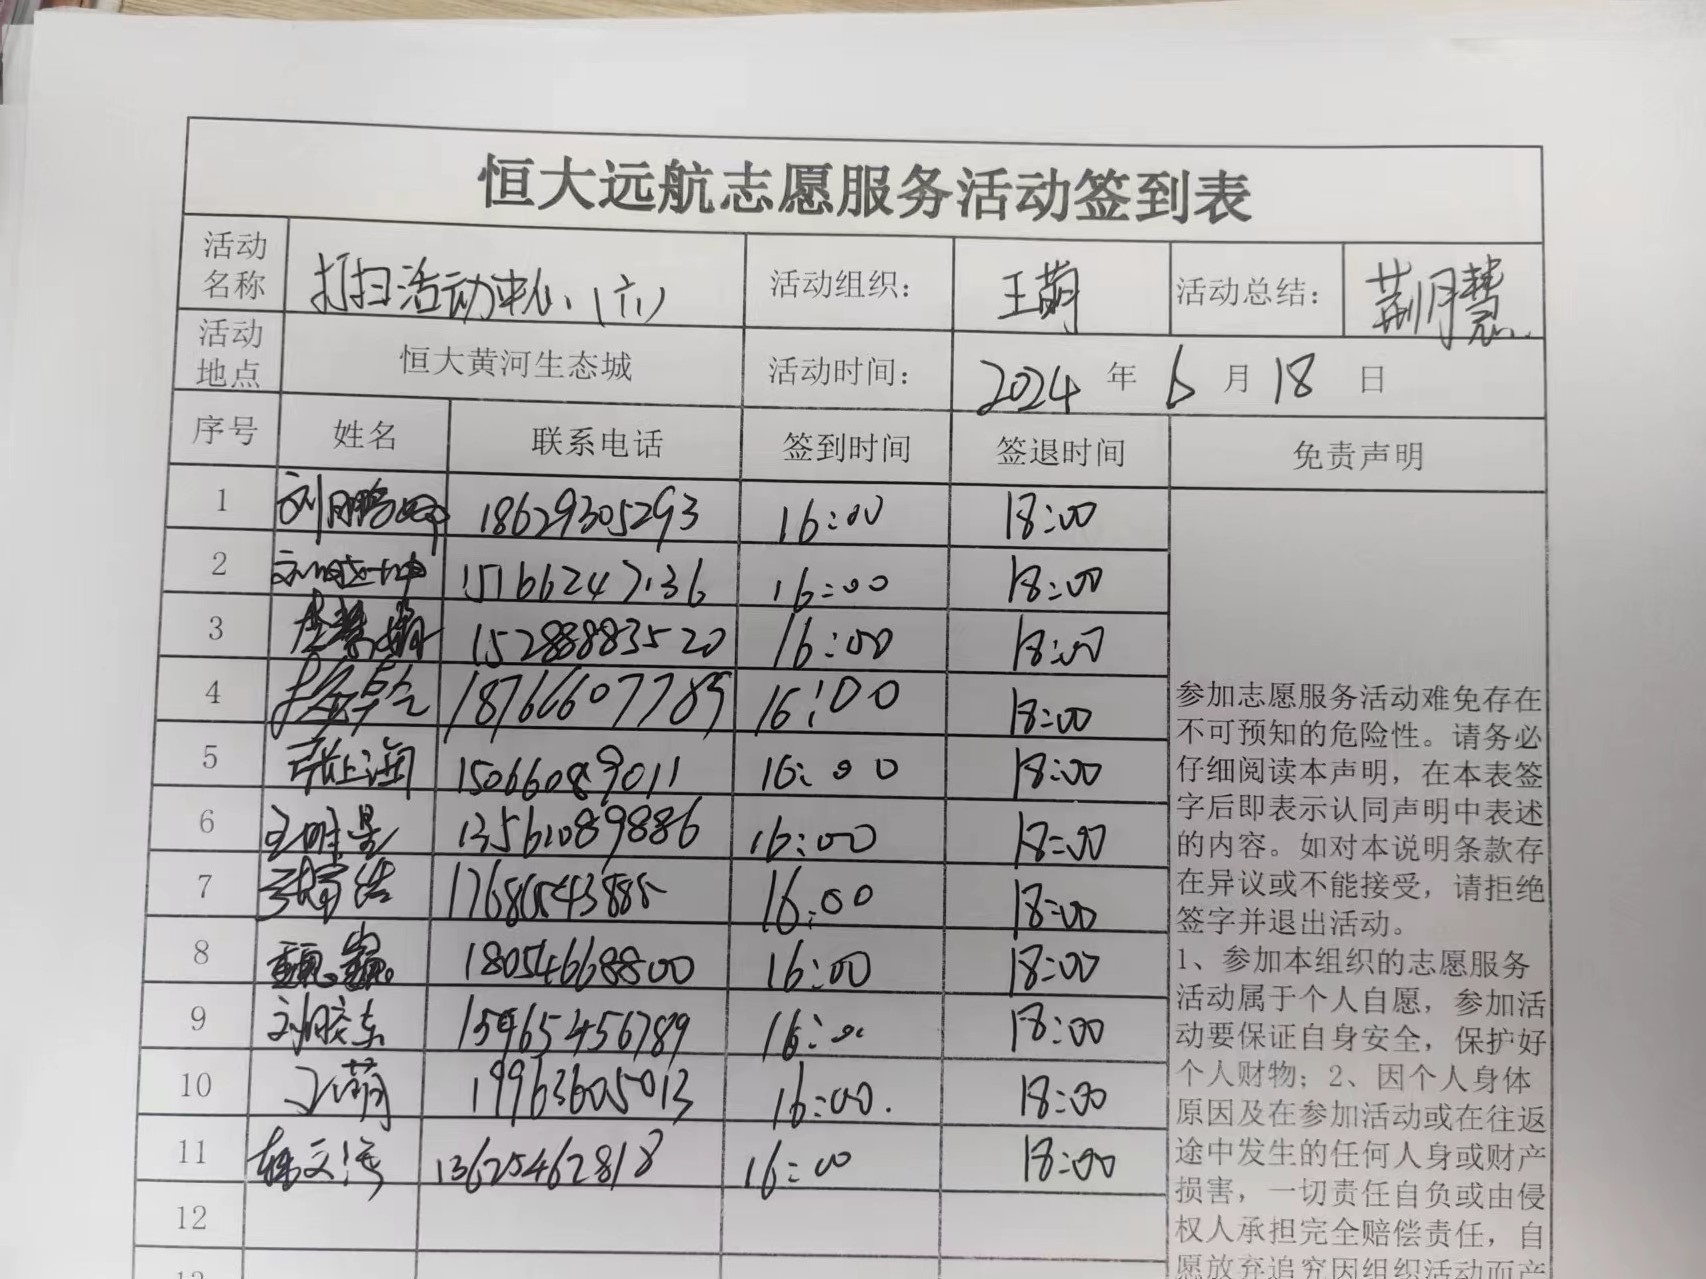 恒大远航志愿服务活动签到表
活动名称 打扫活动中心(六) 活动组织： 王萌 活动总结： 荆月慧
活动地点 恒大黄河生态城 活动时间： 2024 年 6 月 18 日
序号 姓名 联系电话 签到时间 签退时间 免责声明
1 刘鹏 18629305293 16:00 18:00
2 15166247136 16:00 18:00
3 15288883520 16:00 18:00
4 18766607789 16:00 18:00
5 张上海 15066089011 16:00 18:00
6 王明星 13561089886 16:00 18:00
7 16:00 18:00
8 18054668800 16:00 18:00
9 刘胶东 15965456789 16:00 18:00
10 王萌 19963605013 16:00.  18:00
11 13625462818 16:00 18:00
12
13
参加志愿服务活动难免存在
不可预知的危险性。请务必
仔细阅读本声明，在本表签
字后即表示认同声明中表述
的内容。如对本说明条款存
在异议或不能接受，请拒绝
签字并退出活动。
1、参加本组织的志愿服务
活动属于个人自愿，参加活
动要保证自身安全，保护好
个人财物；2、因个人身体
原因及在参加活动或在往返
途中发生的任何人身或财产
损害，一切责任自负或由侵
权人承担完全赔偿责任，自
愿放弃追究因组织活动而产